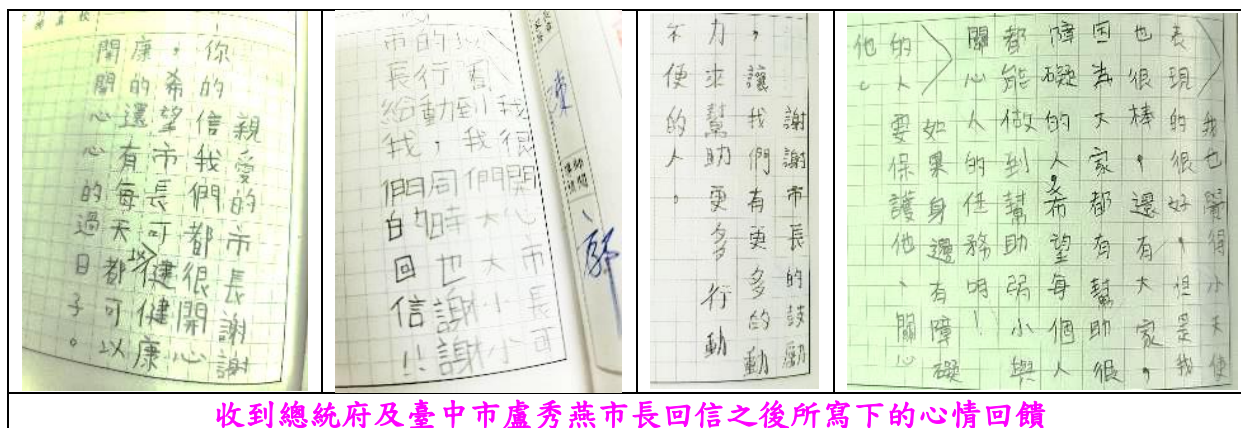 親愛的市長謝謝
你的信我們都很開心
，希望市長可以健健康
康的還有每天都可以
開開心心的過日子。
我很開心市長可
以看到我們大大小小
的行動，同時也謝謝
市長給我們的回信!!
謝謝市長的鼓勵
，讓我們有更多的動
力來幫助更多行動
不便的人。
我也覺得小天使
表現的很好，但是我
也很棒，還有大家，
因為大家都有幫助很
障礙的人，希望每個人
都能做到幫助弱小與
關心人的任務明！
如果身邊有障礙
的人要保護他、關心
他。
收到總統府及臺中市盧秀燕市長回信之後所寫下的心情回饋